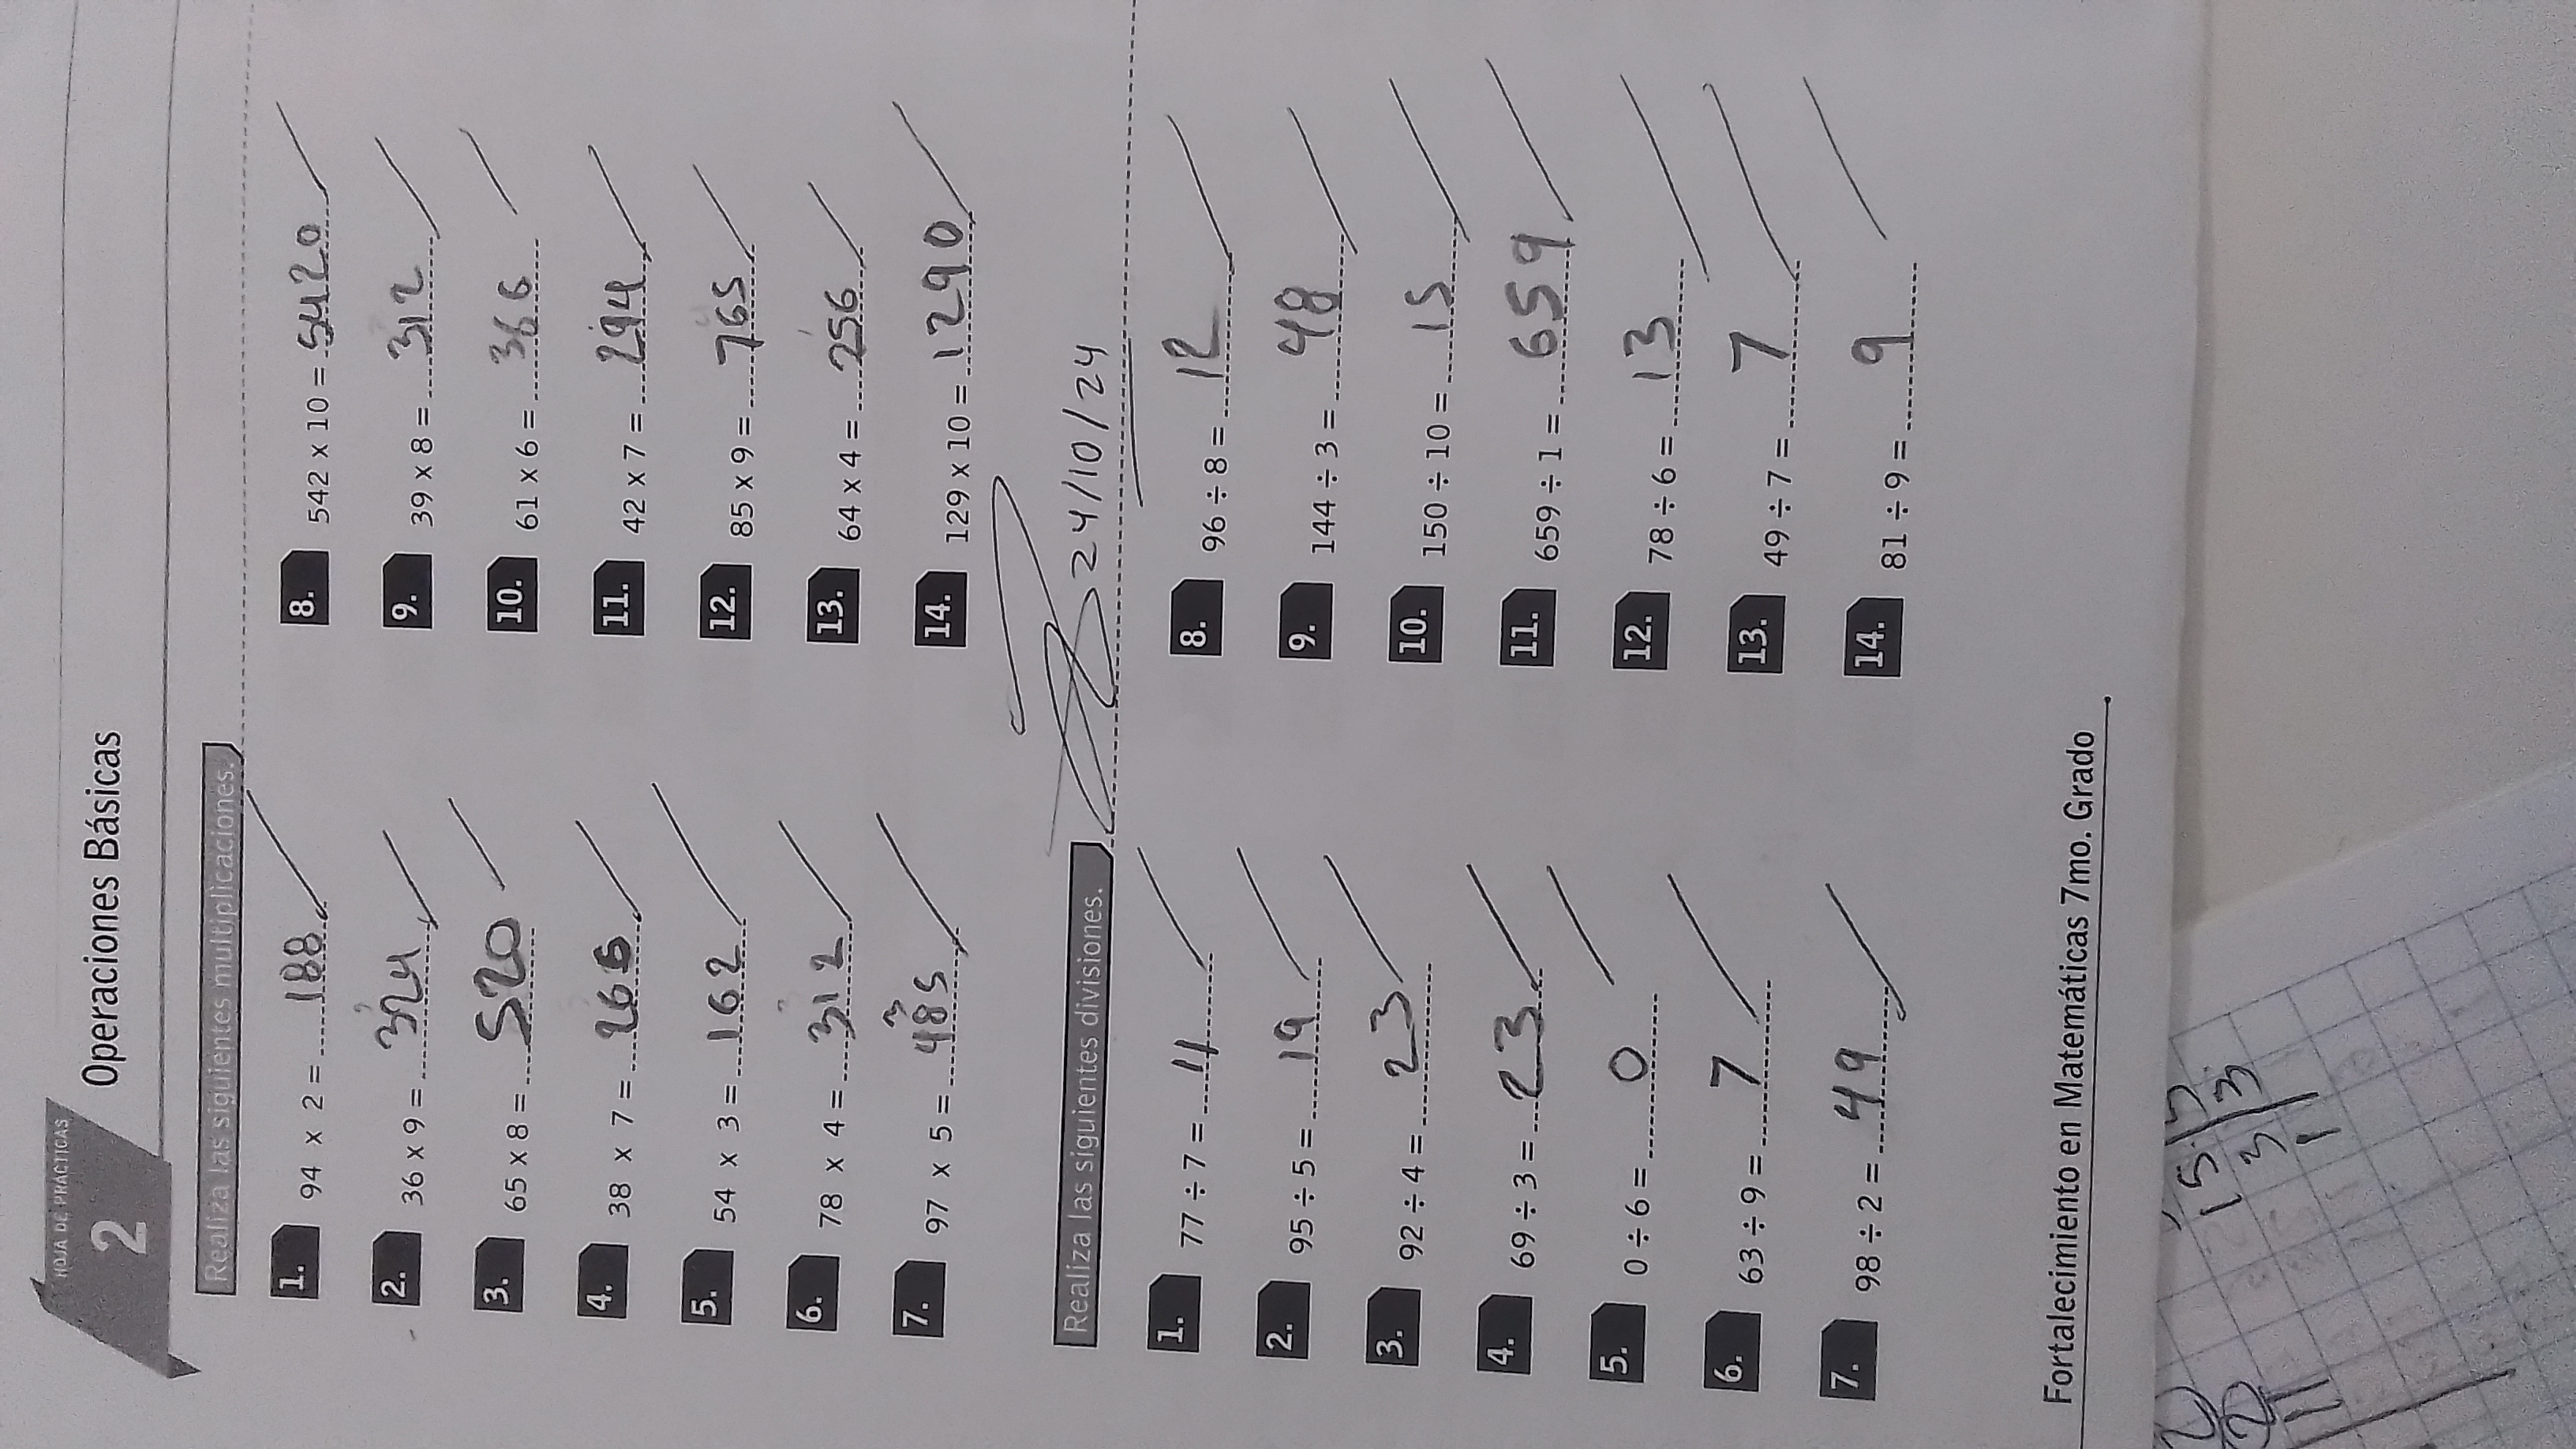 HOJA DE PRÁCTICAS
2
Operaciones Básicas
Realiza las siguientes multiplicaciones.
1. 94 x 2 = 188
2. 36 x 9 = 324
3. 65 x 8 = 520
4. 38 x 7 = 266
5. 54 x 3 = 162
6. 78 x 4 = 312
7. 97 x 5 = 485
8. 542 x 10 = 5420
9. 39 x 8 = 312
10. 61 x 6 = 366
11. 42 x 7 = 294
12. 85 x 9 = 765
13. 64 x 4 = 256
14. 129 x 10 = 1290
24/10/24
Realiza las siguientes divisiones.
1. 77 ÷ 7 = 11
2. 95 ÷ 5 = 19
3. 92 ÷ 4 = 23
4. 69 ÷ 3 = 23
5. 0 ÷ 6 = 0
6. 63 ÷ 9 = 7
7. 98 ÷ 2 = 49
8. 96 ÷ 8 = 12
9. 144 ÷ 3 = 48
10. 150 ÷ 10 = 15
11. 659 ÷ 1 = 659
12. 78 ÷ 6 = 13
13. 49 ÷ 7 = 7
14. 81 ÷ 9 = 9
Fortalecimiento en Matemáticas 7mo. Grado